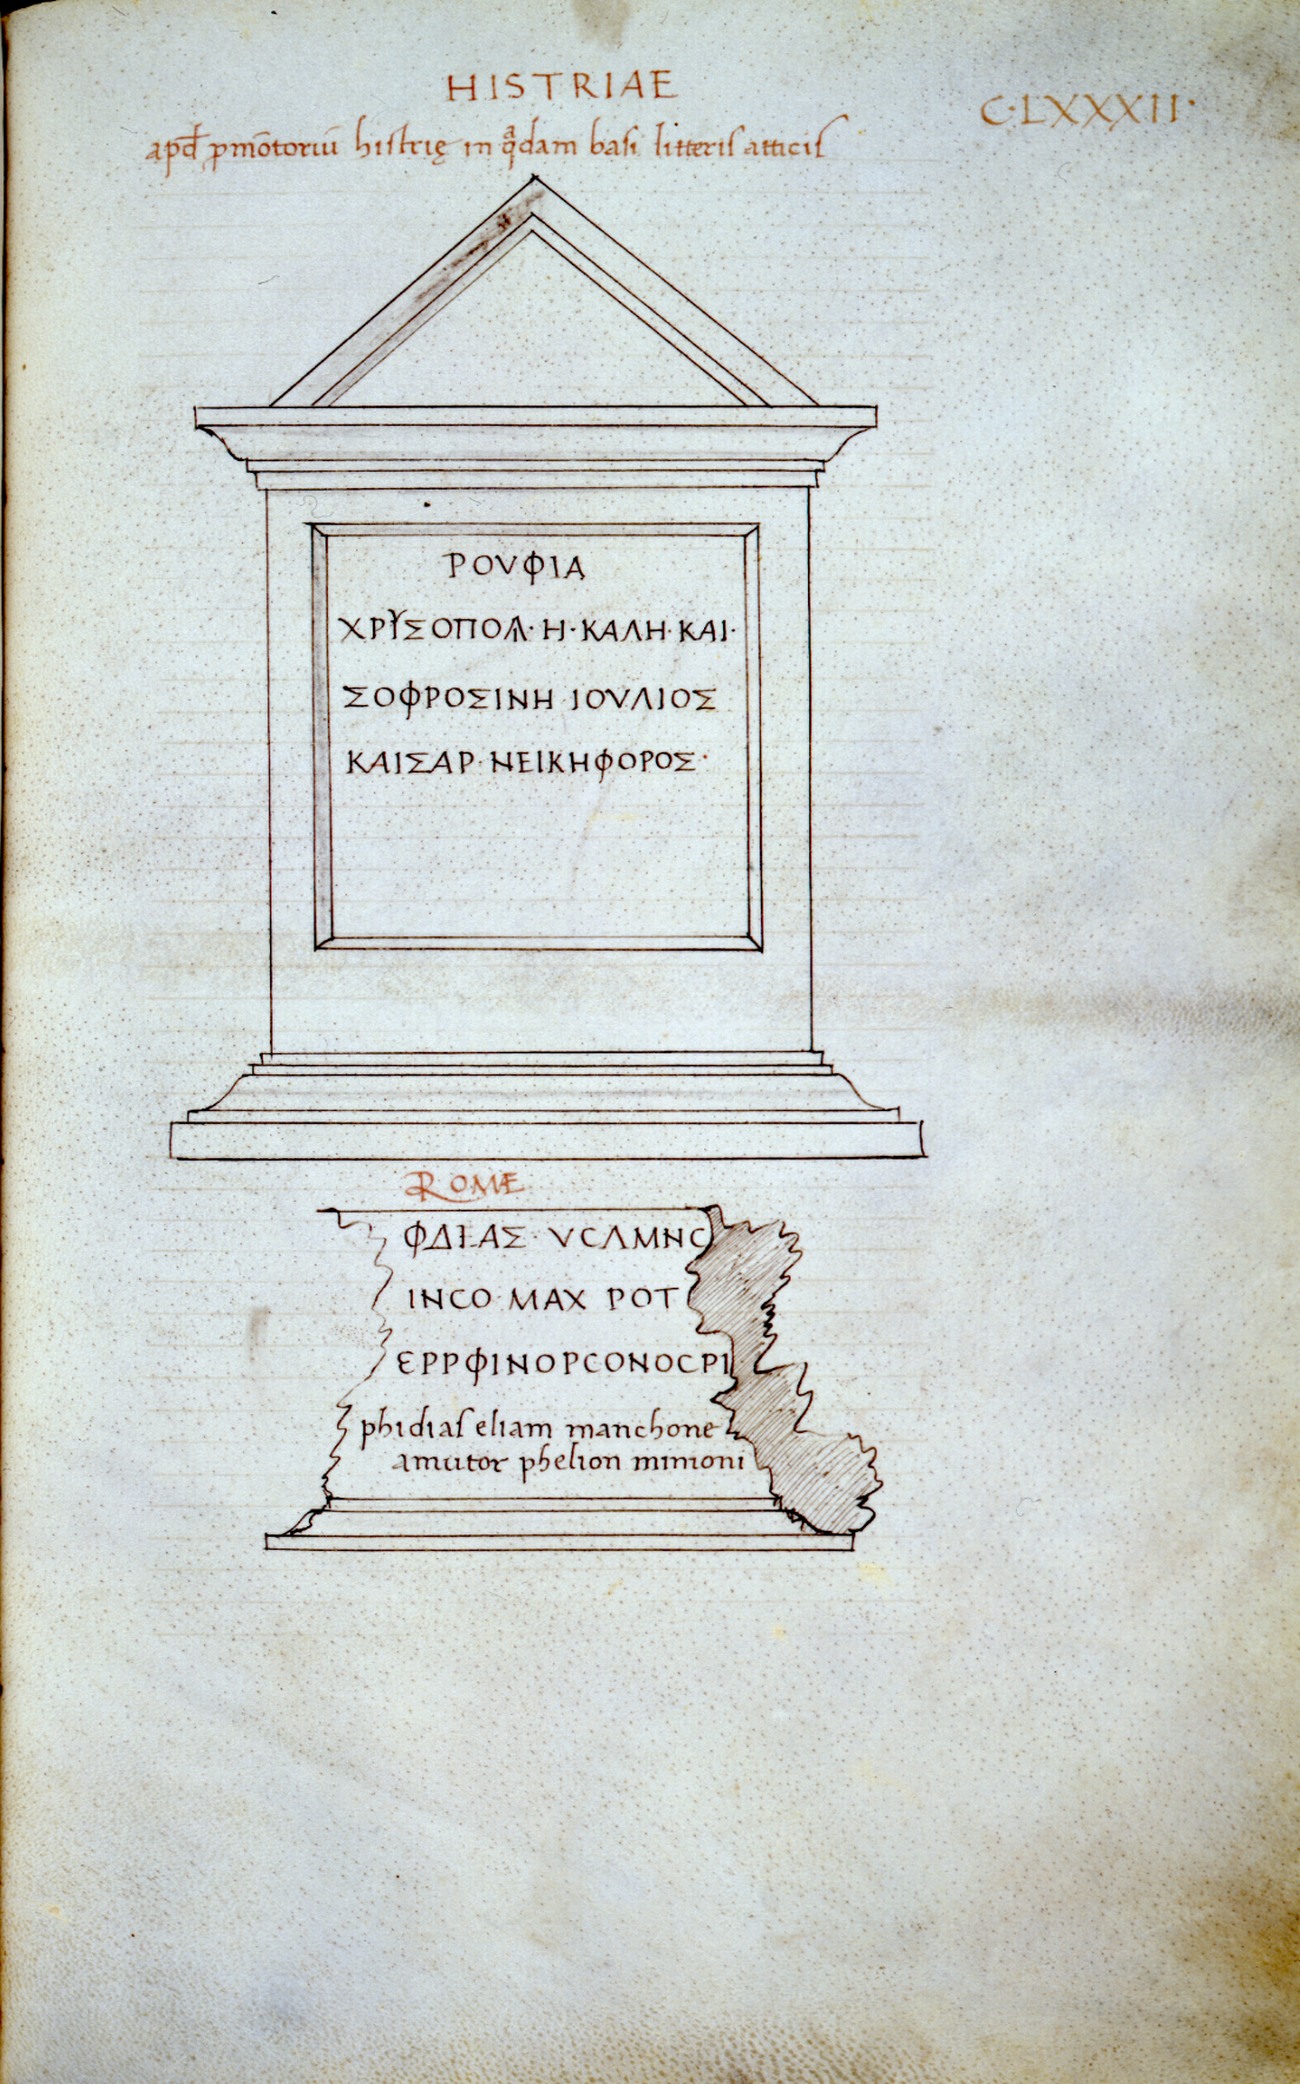 HISTRIAE
C·LXXXII·
apđ ꝓmōtoriū histrię in qͣdam basi litteris atticis
ΡΟVΦΙΑ
ΧΡΥΣΟΠΟΛ· Η· ΚΑΛΗ· ΚΑΙ·
ΣΟΦΡΟΣΙΝΗ ΙΟVΛΙΟΣ
ΚΑΙΣΑΡ· ΝΕΙΚΗΦΟΡΟΣ·
ROMÆ
ΦΔΙΑΣ· VCΛΜΗC
INCO MAX POT
ЄΡΡΦΙΝΟΡCΟΝΟCΡΙ
phidias eliam manchone
amutor phelion mimoni